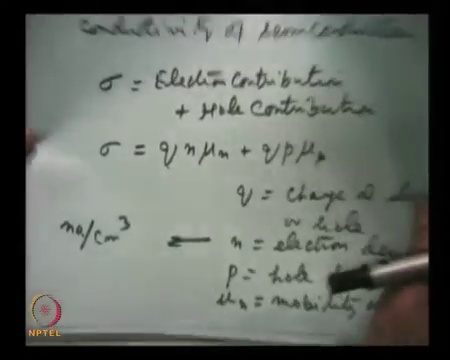 Conductivity of Semiconductors
σ = Electron Contribution
+ Hole Contribution
σ = q n μn + q p μp
q = charge
or hole
no/cm³ ← n = electron
p = hole
μn = mobility
NPTEL